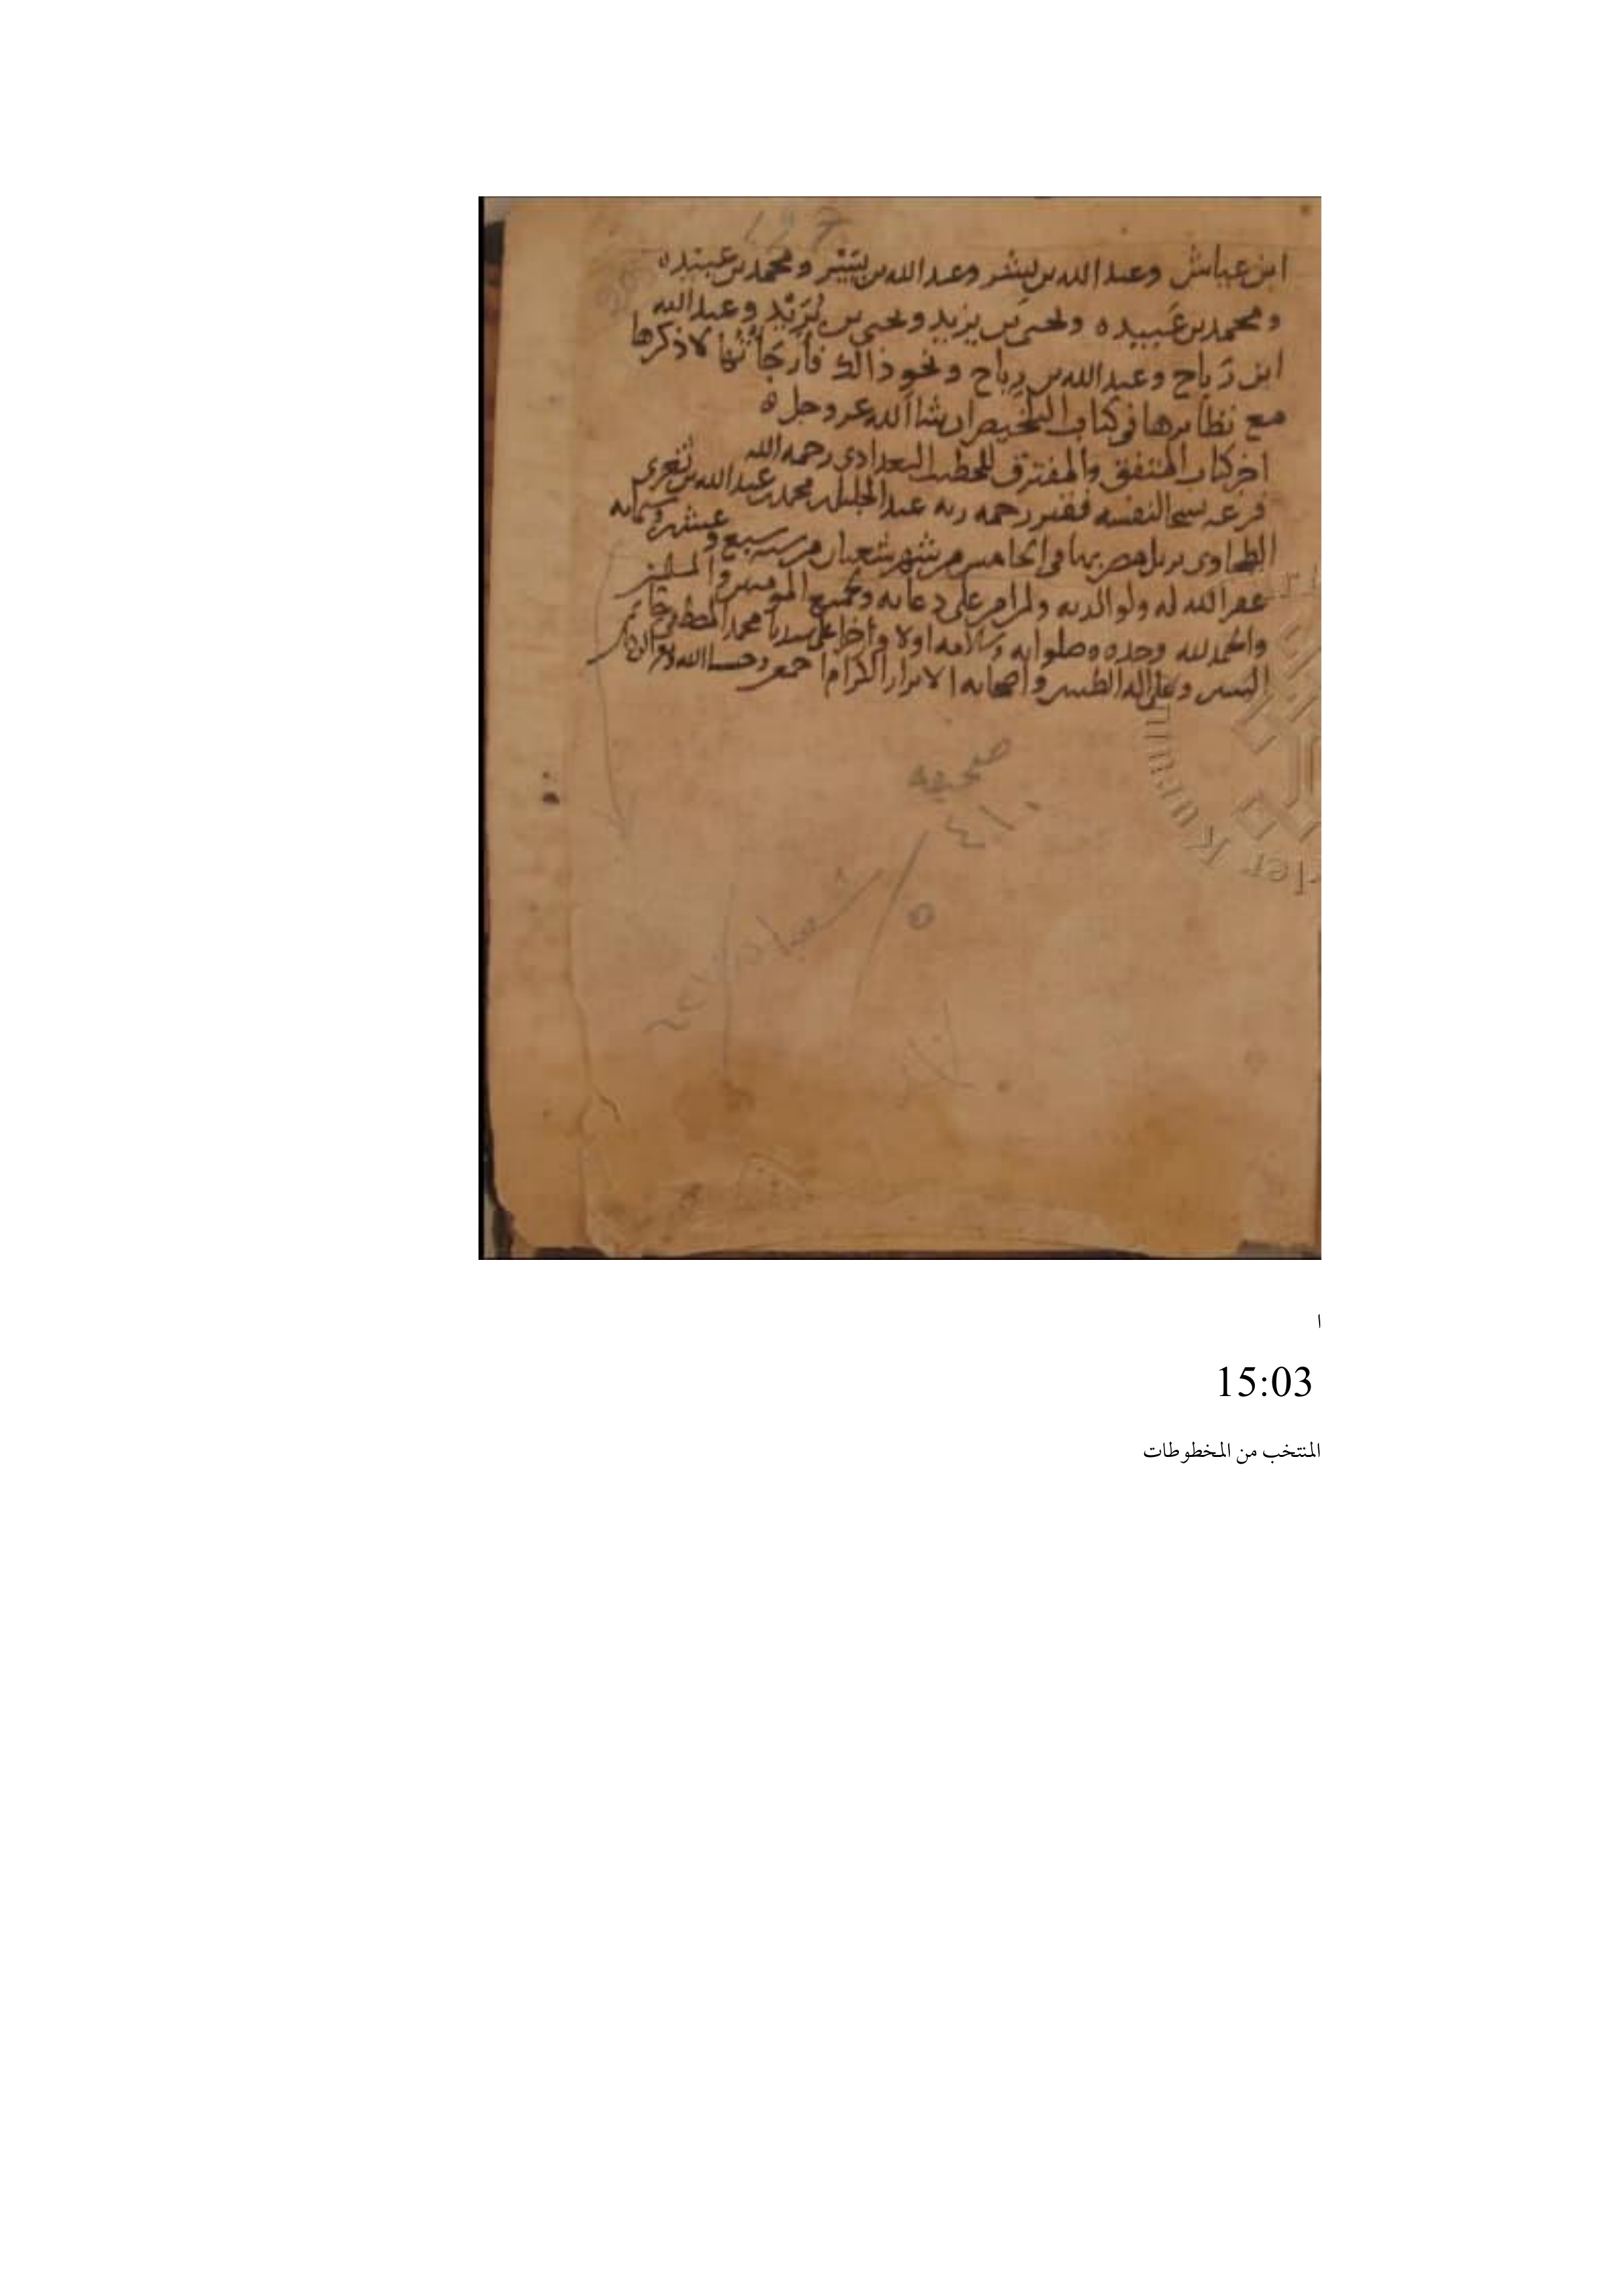 ابن عباس وعبد الله بن بشر وعبد الله بن بشر ومحمد بن عبيدة
ومحمد بن عبيده ويحيى بن يزيد ويحيى بن يزيد وعبد الله
ابن رباح وعبد الله بن رباح ونحو ذالك فارجأتها لاذكرها
مع نظايرها في كتاب التلخيص ان شا الله عز وجل
اخر كتاب المتفق والمفترق للخطيب البغدادي رحمه الله
فرغ نسخا لنفسه فقير رحمه ربه عبد الجليل محمد بن عبد الله بن
الطحاوي نزيل مصر بها في الخامس من شهر شعبان من سنه سبع وعشر وستمايه
غفر الله له ولوالديه ولمن امن على دعايه ولجميع المومنين والمسلمين
والحمد لله وحده وصلواته وسلامه اولا واخرا على سيدنا محمد المصطفى خاتم
النبيين وعلى اله الطيبين واصحابه الابرار الكرام اجمعين وحسبنا الله ونعم الوكيل
صحيفه
٤١٠
٥
ا
15:03
المنتخب من المخطوطات